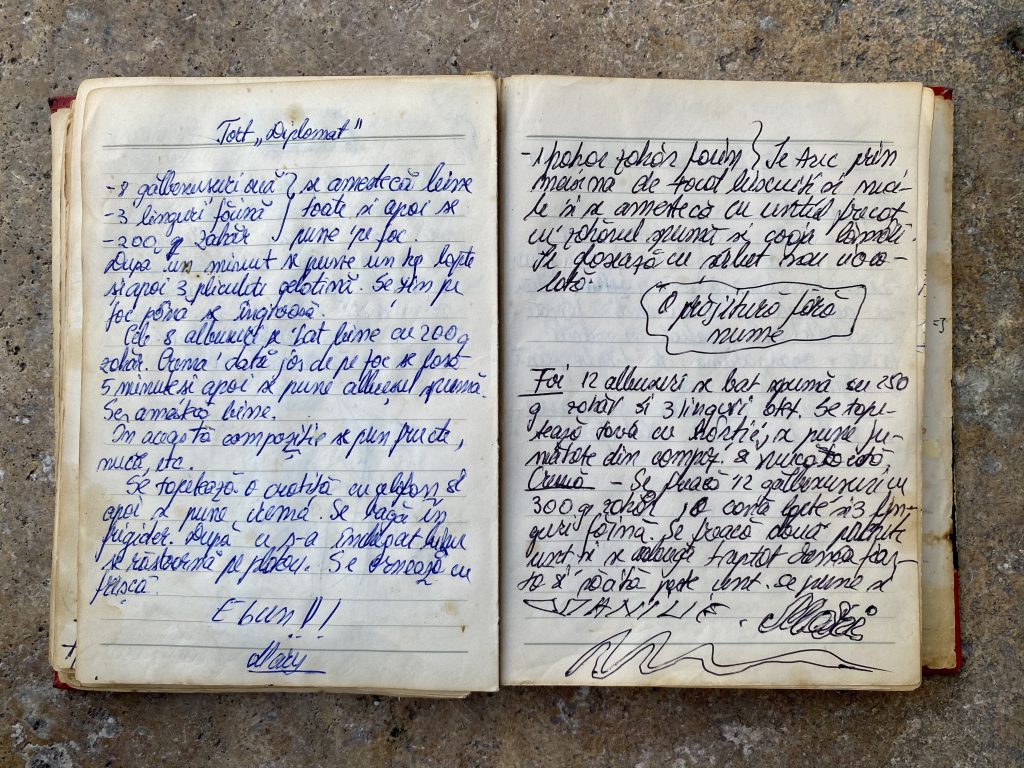 Tort „Diplomat"
- 8 gălbenușuri ouă } se amestecă bine
- 3 linguri făină } toate și apoi se
- 200 g zahăr } pune pe foc.
După un minut se pune un kg lapte
și apoi 3 pliculețe gelatină. Se țin pe
foc până se îngroașă.
Cele 8 albușuri se bat bine cu 200 g
zahăr. Crema dată jos de pe foc se lasă
5 minute și apoi se pune albușul spumă.
Se amestecă bine.
În această compoziție se pun fructe,
nucă, etc.
Se tapetează o cratiță cu celofan și
apoi se pune crema. Se bagă în
frigider. După ce s-a închegat bine
se răstoarnă pe platou. Se ornează cu
frișcă.
E bun!!!
Mary
- 1 pahar zahăr farin } Se trec prin
mașina de tocat biscuiții și nuci-
le și se amestecă cu untul frecat
cu zahărul spumă și coaja lămâii.
Se glasează cu sherbet sau cioco-
lată.
O prăjitură fără
nume
Foi 12 albușuri se bat spumă cu 250
g zahăr și 3 linguri oțet. Se tape-
tează tava cu hârtie, se pune ju-
mătate din compoz. și nucă tocată,
Cremă - Se freacă 12 gălbenușuri cu
300 g zahăr, o cană lapte și 3 lin-
guri făină. Se freacă două pachete
unt și se adaugă treptat crema
și răcită peste unt. Se pune și
VANILIE.